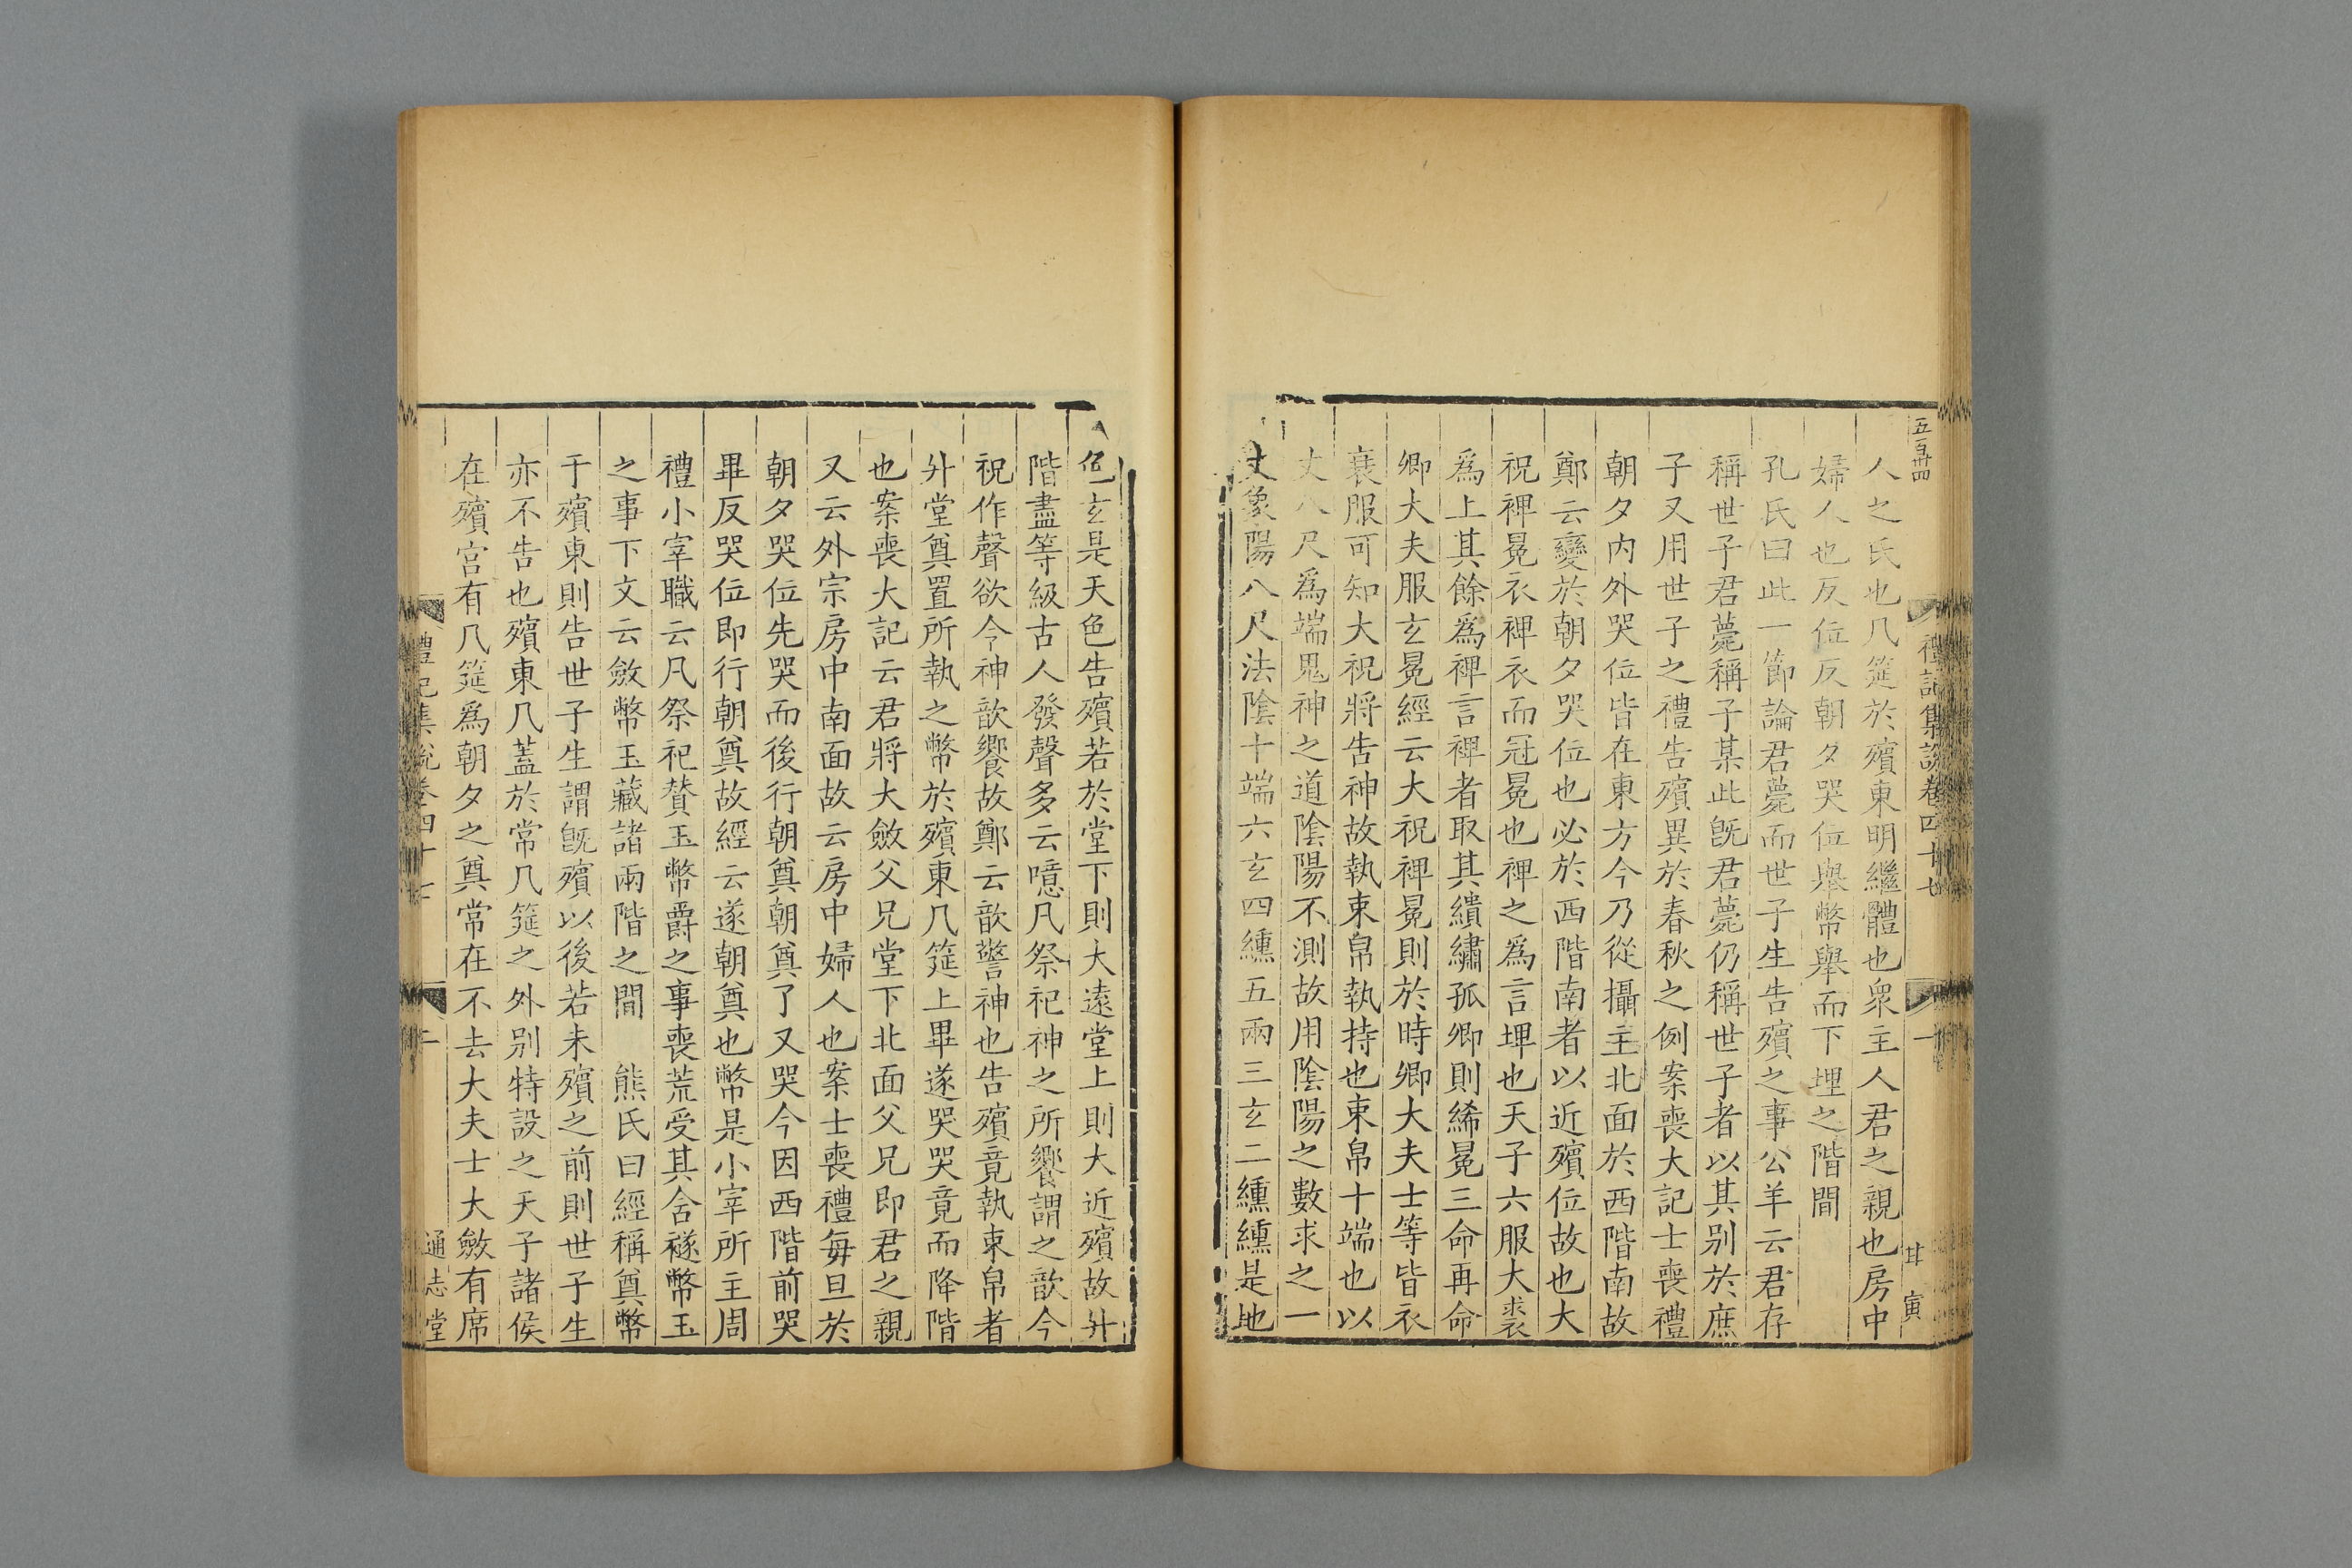 五百卅四
禮記集說卷四十七
一
甘寅
人之氏也几筵於殯東明繼體也衆主人君之親也房中
婦人也反位反朝夕哭位舉幣舉而下埋之階間
孔氏曰此一節論君薨而世子生告殯之事公羊云君存
稱世子君薨稱子某此旣君薨仍稱世子者以其别於庶
子又用世子之禮告殯異於春秋之例案喪大記士喪禮
朝夕内外哭位皆在東方今乃從攝主北面於西階南故
鄭云變於朝夕哭位也必於西階南者以近殯位故也大
祝裨冕衣裨衣而冠冕也裨之爲言埤也天子六服大裘
爲上其餘爲裨言裨者取其繢繡孤卿則絺冕三命再命
卿大夫服玄冕經云大祝裨冕則於時卿大夫士等皆衣
衰服可知大祝將告神故執束帛執持也束帛十端也以
丈八尺爲端鬼神之道陰陽不測故用陰陽之數求之一
丈象陽八尺法陰十端六玄四纁五兩三玄二纁纁是地
色玄是天色告殯若於堂下則大遠堂上則大近殯故升
階盡等級古人發聲多云噫凡祭祀神之所饗謂之歆今
祝作聲欲令神歆饗故鄭云歆警神也告殯竟執束帛者
升堂奠置所執之幣於殯東几筵上畢遂哭哭竟而降階
也案喪大記云君將大斂父兄堂下北面父兄即君之親
又云外宗房中南面故云房中婦人也案士喪禮每旦於
朝夕哭位先哭而後行朝奠朝奠了又哭今因西階前哭
畢反哭位即行朝奠故經云遂朝奠也幣是小宰所主周
禮小宰職云凡祭祀賛玉幣爵之事喪荒受其含襚幣玉
之事下文云斂幣玉藏諸兩階之間　熊氏曰經稱奠幣
于殯東則告世子生謂旣殯以後若未殯之前則世子生
亦不告也殯東几蓋於常几筵之外别特設之天子諸侯
在殯宫有几筵爲朝夕之奠常在不去大夫士大斂有席
禮記集說卷四十七
二
通志堂